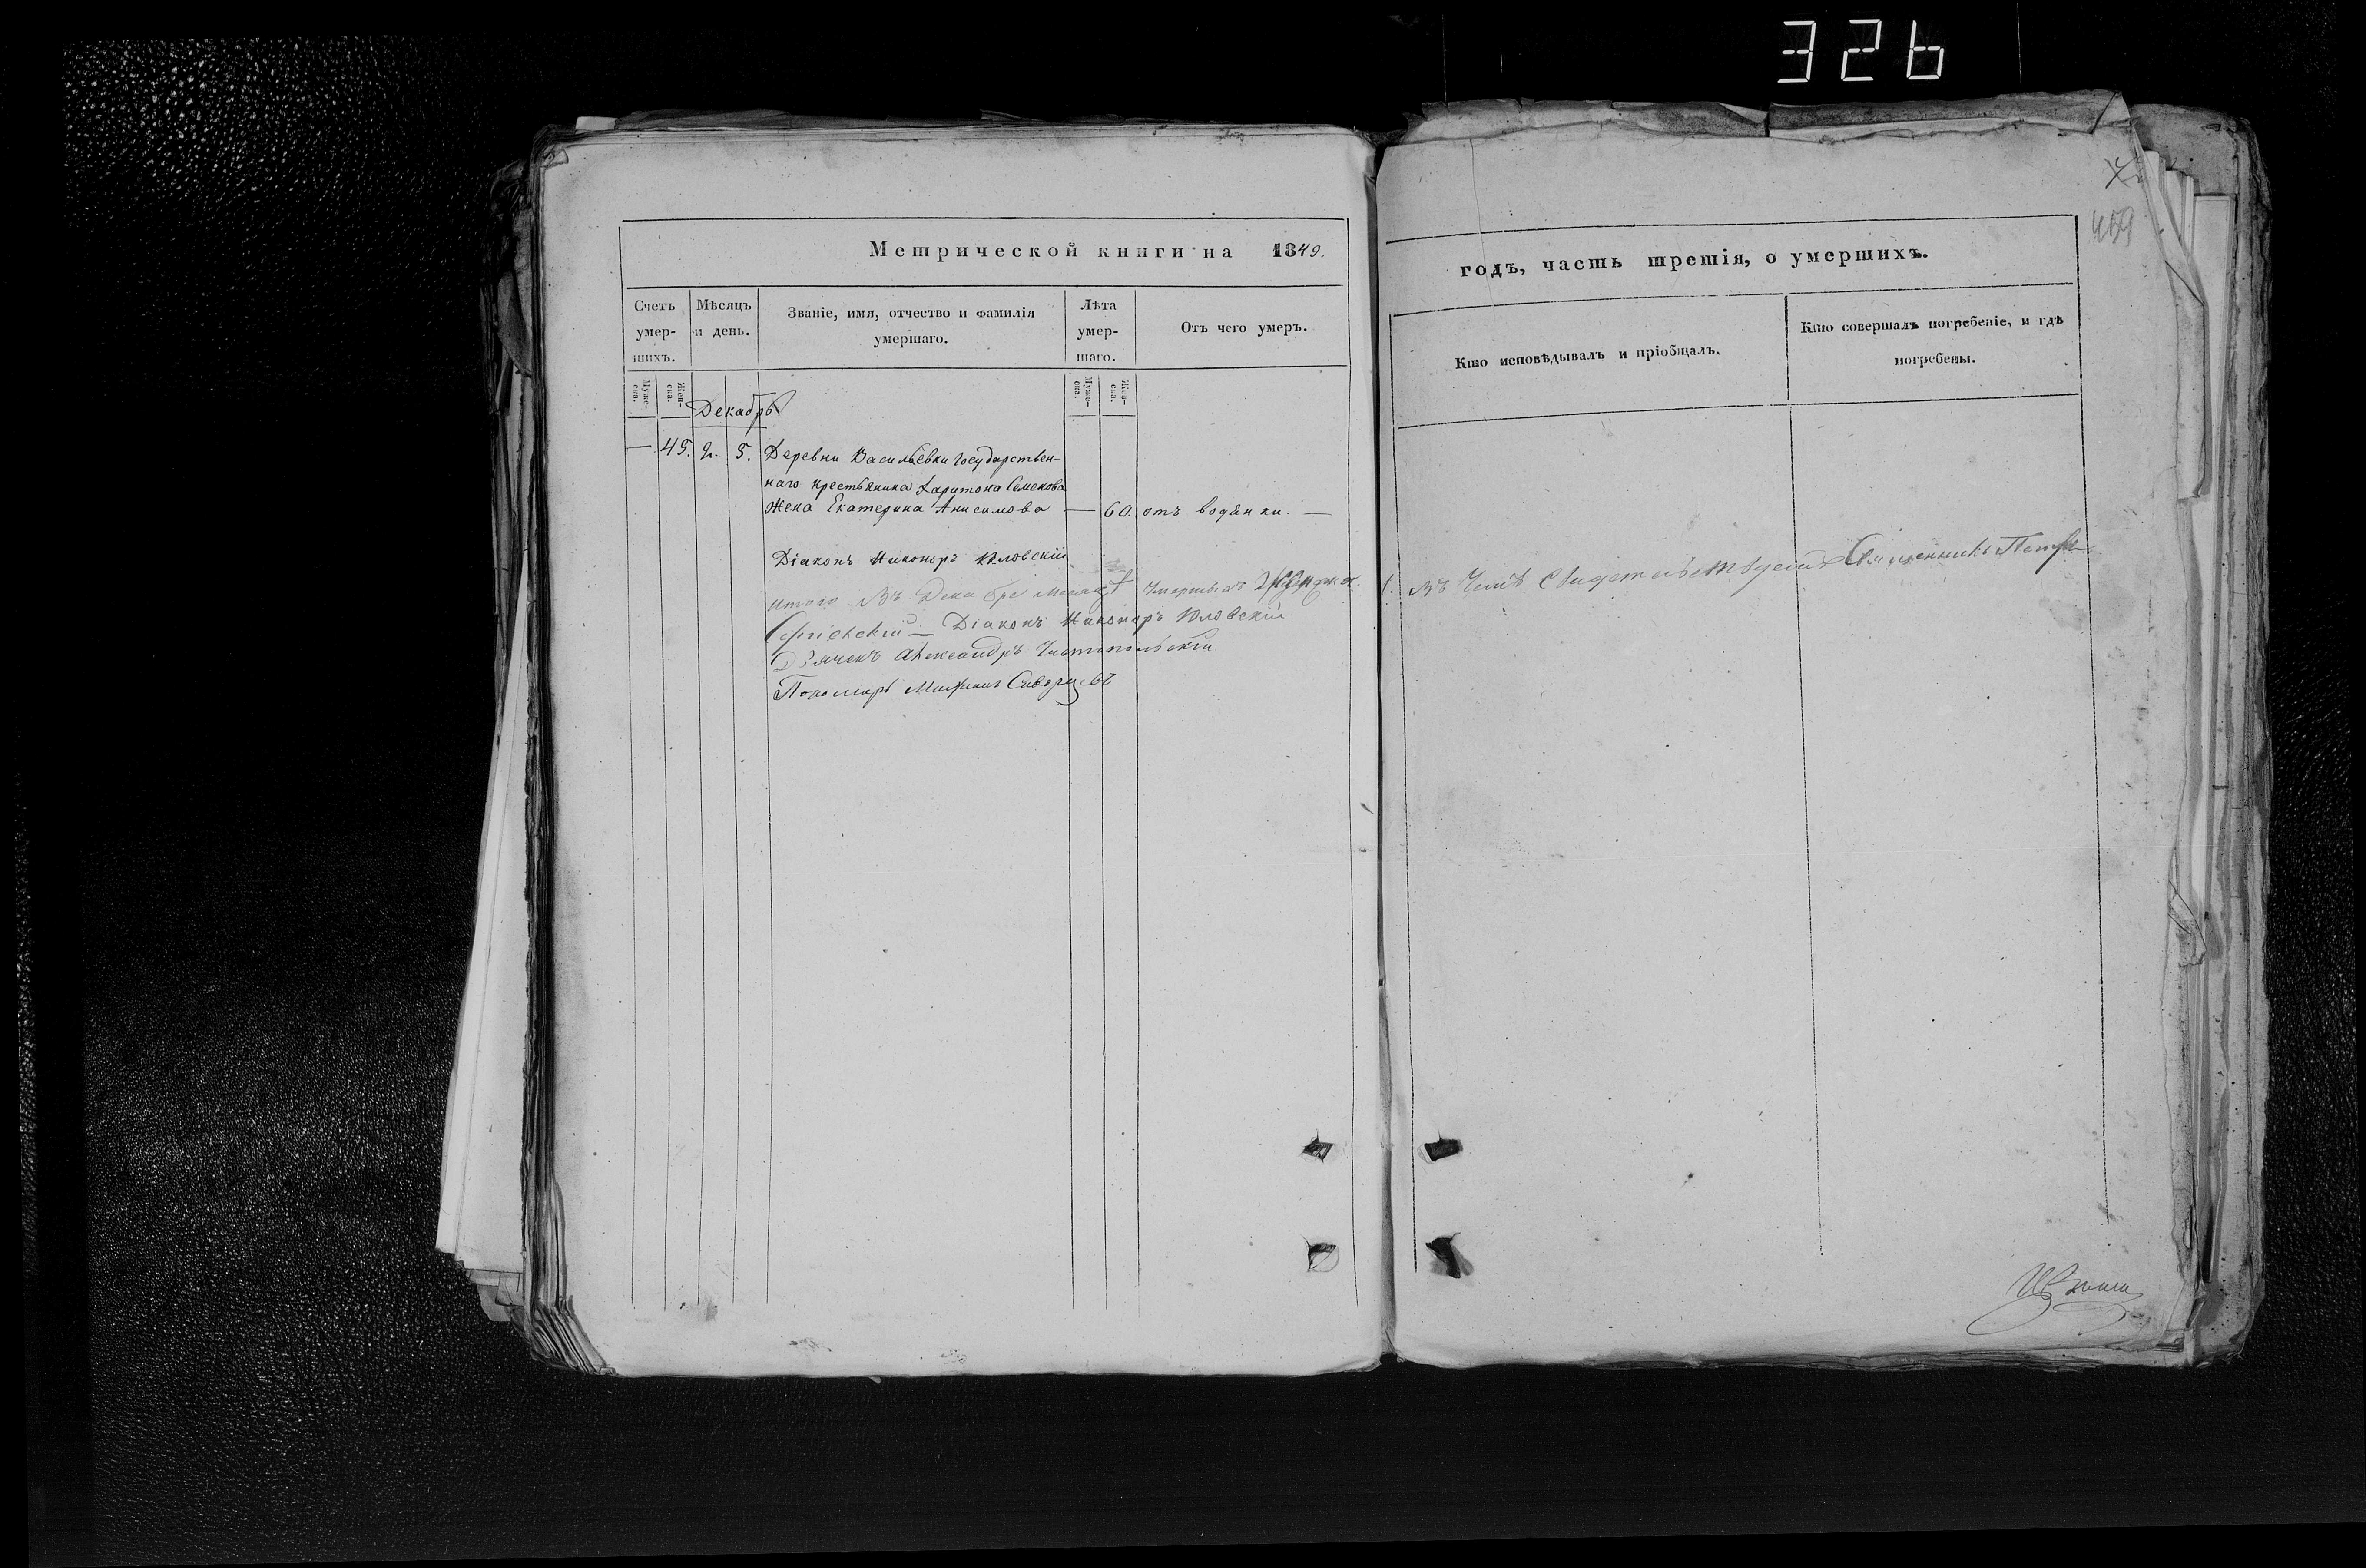 326
459
Метрической книги на 1849.
годъ, часть третія, о умершихъ.
Счетъ умер-шихъ.
Мѣсяцъ и день.
Званіе, имя, отчество и фамилія умершаго.
Лѣта умер-шаго.
Отъ чего умеръ.
Кто исповѣдывалъ и пріобщалъ.
Кто совершалъ погребеніе, и гдѣ погребены.
Муже-ска.
Жен-ска.
Муже-ска.
Жен-ска.
Декабрь
— 45. 2. 5. Деревни Васильевки Государствен-
наго крестьянина Харитона Семенова
жена Екатерина Анисимова — 60. отъ водянки. —
Діаконъ Никаноръ
итого въ Декабре месяце Умершихъ
1. въ Чемъ свидетельствуемъ Священникъ Петръ
Діаконъ Никаноръ
Дьячекъ Александръ Чистопольскій
Пономарь Скворцовъ